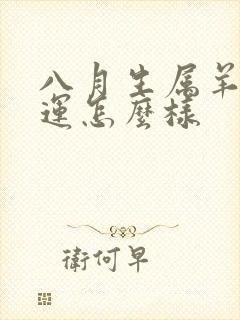 八月生属羊
運怎麼樣
衛何早